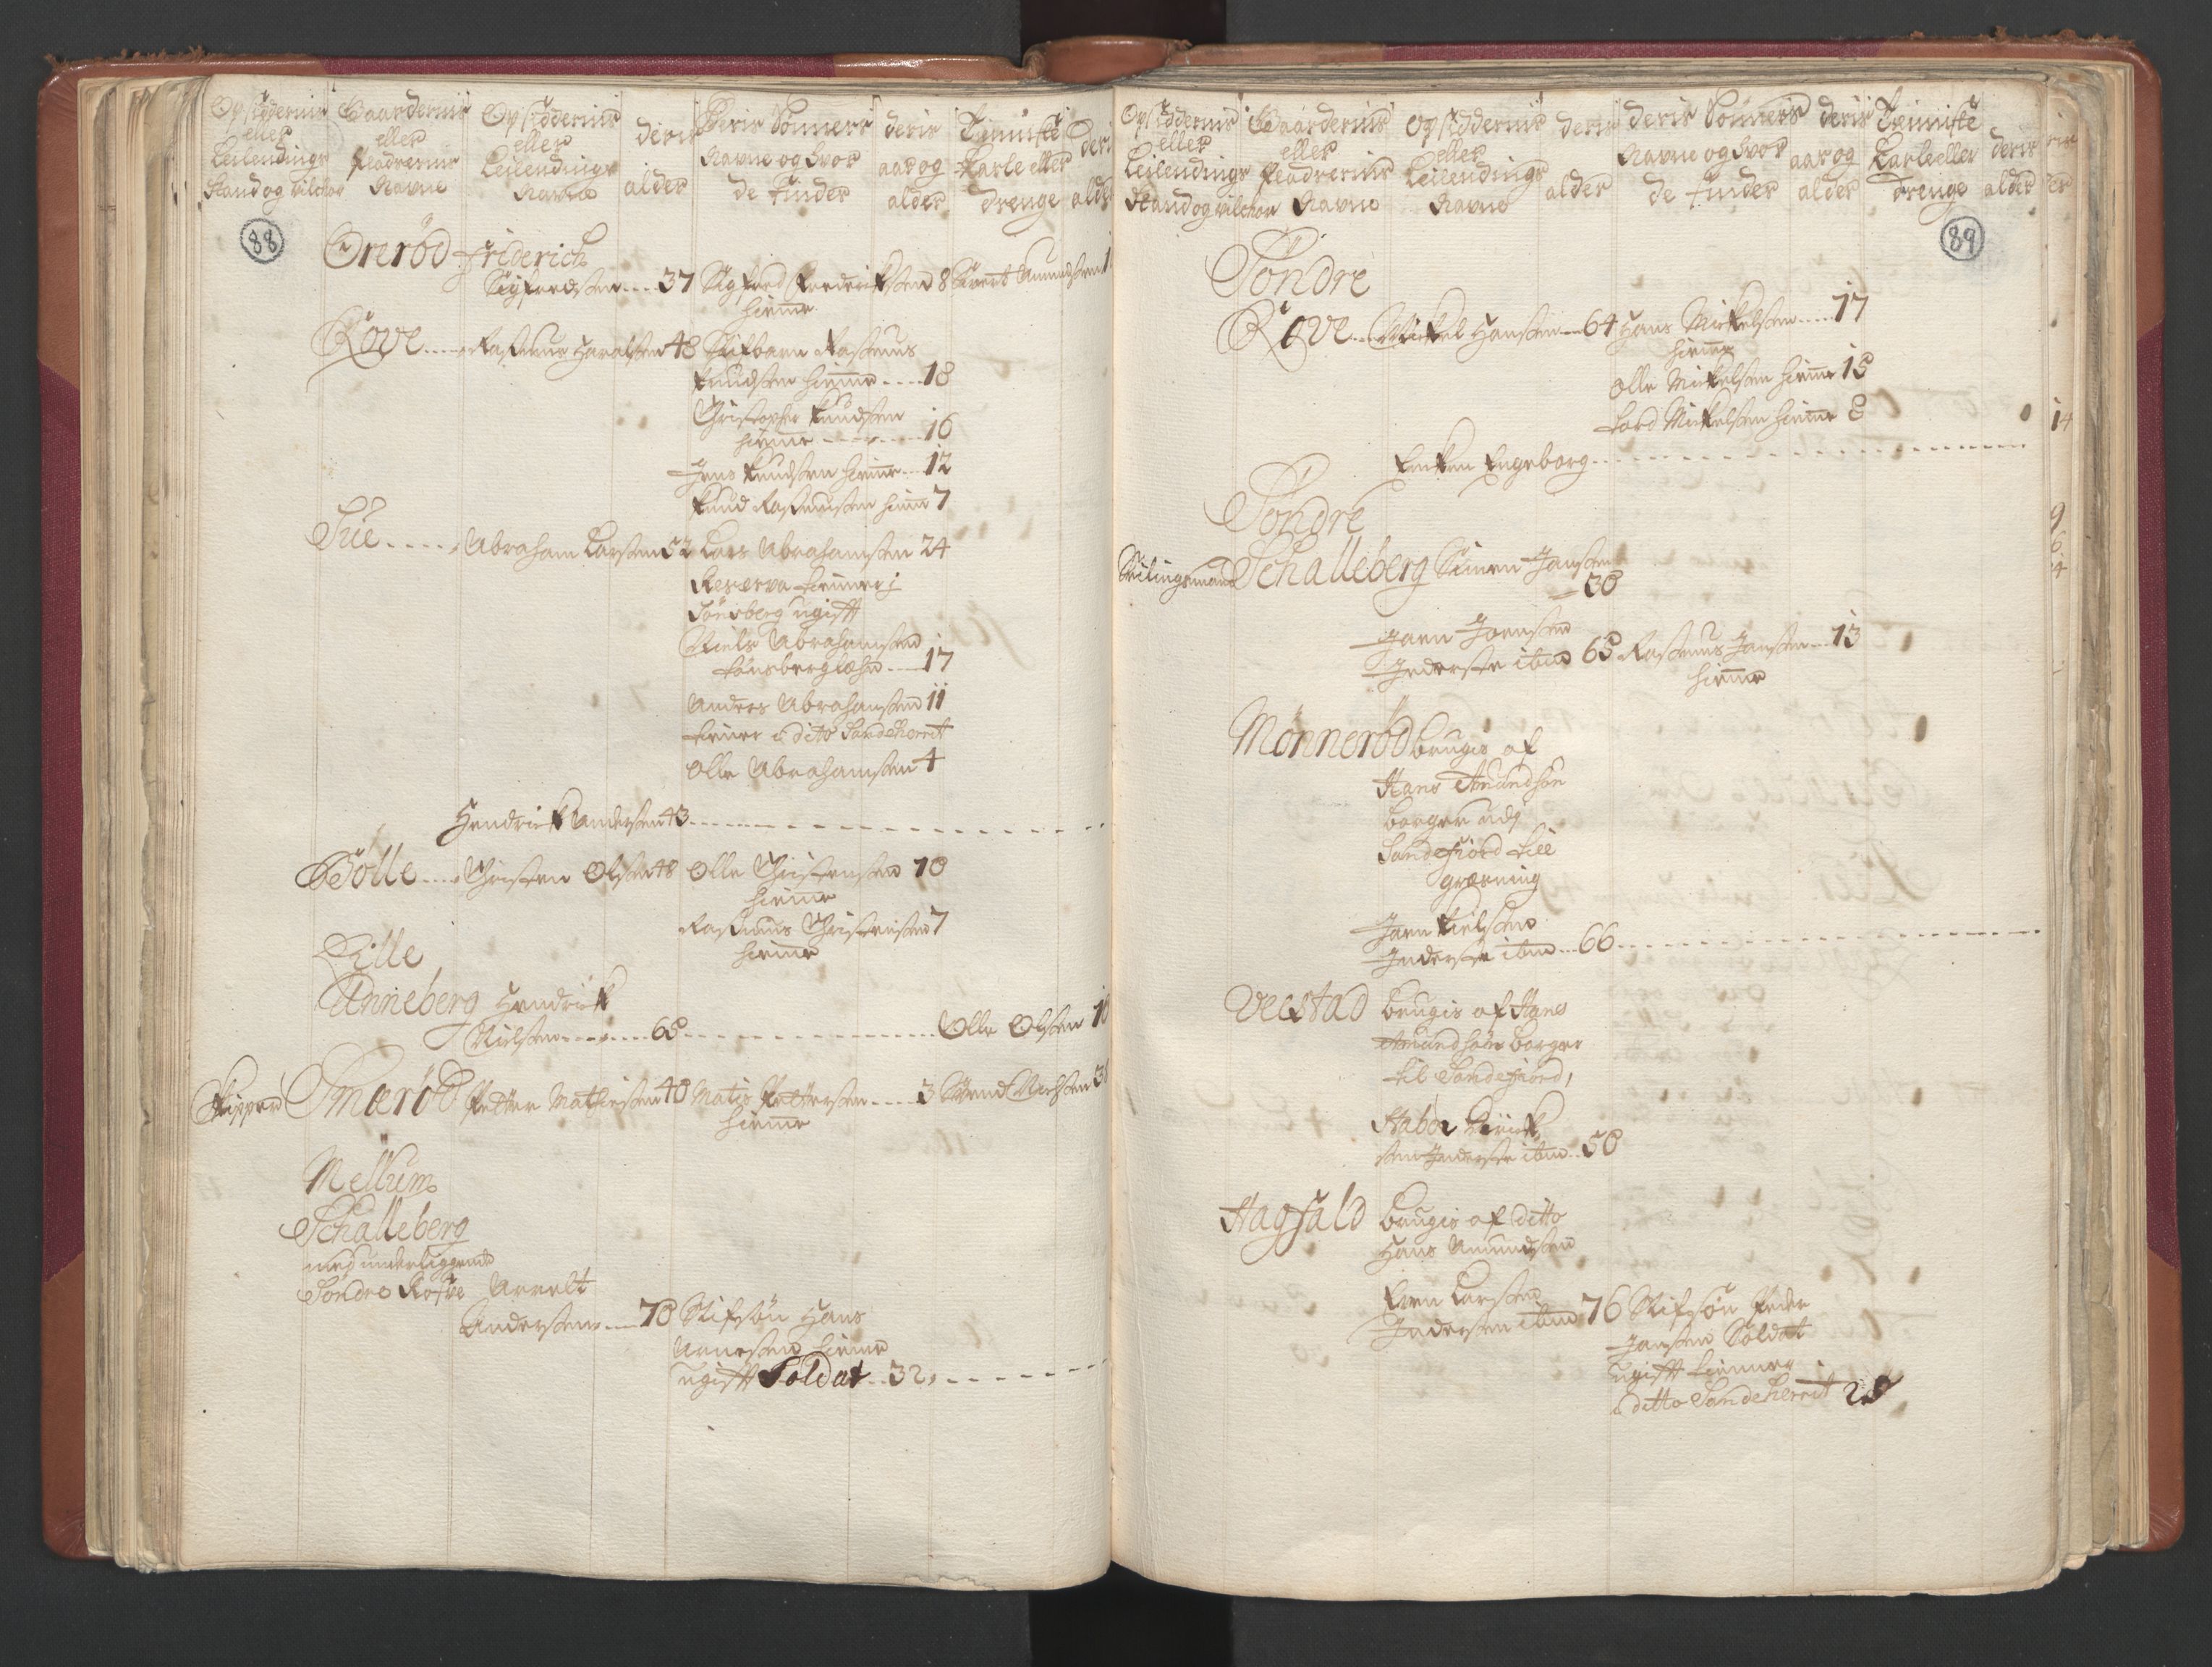 Opsiddernis eller Leilendings Stand og vilchor
Gaardernis eller Pladzernis Navne
Opsiddernis eller Leilendings Navne
deris alder
Deris Sønners Navne og hvor de finder
deris aar og alder
Tieniste Karle eller drenge
88
Ørerød Friderich
Sigfredsen .... 37 Sigfred Fredrichsen 8 Sivert Amundsen
hiemme
Rove ..... Rasmus Haralsen 48 Stifbarn Rasmus
Knudsen hiemme .... 18
Christopher Knudsen
hiemme ........ 16
Jens Knudsen hiemme ... 12
Knud Rasmusen hiem 7
Sue ..... Abraham Larsen 52 Lars Abrahamsen 24
Reserva tienner i
Tønsberg ugifft
Niels Abrahamsen
Tønsberglæhn .... 17
Anders Abrahamsen 11
tiener i dito Sandeherrit
Olle Abrahamsen 4
Hendrick Andersen 43
Bølle .... Christen Olsen 48 Olle Christensen 10
hiemme
Rasmus Christensen 7
hiemme
Lille
Unneberg Hendrick
Nielsen ........ 65 Olle Olsen
Skipper Smørød Petter Mathiesen 40 Matis Pettersen .... 3 Svend Nielsen
hiemme
Mellum
Schalleberg
med underliggende
Søndre Roffve Arvelt
Andersen .... 70 Stifsøn Hans
Arnesen hieme
ugifft Soldat .. 32
Opsiddernis eller Leilendings Stand og vilchor
Gaardernis eller Pladzernis Navne
Opsiddernis eller Leilendings Navne
deris alder
deris Sønners Navne og hvor de finder
deris aar og alder
Tieniste Karle eller drenge
deris alder
89
Søndre
Rove .... Mickel Hansen ... 64 Hans Mickelsen ..... 17
hieme
Olle Mickelsen hieme 15
Lord Mickelsen hieme 8
14
Encken Engeborg
Søndre
Schalleberg Simen Jansen
30
Jørn Joensen
Inderste ibm 65 Rasmus Jansen ... 13
hieme
Mønnerød brugis af
Hans Amundsøn
borger udj
Sandefiord till
græsning
Jørn Kielsen
Inderste ibm ... 66
Velstad brugis af Hans
Amundsøn borger
til Sandefiord,
Habor Kirick
sen Inderste ibm .. 50
Hagfald brugis af ditto
Hans Amundsen
Even Larsen
Indersten ibm 76 Stifsøn Peder
Jansen Soldat
ugifft tienner
i ditto Sandeherrit 28